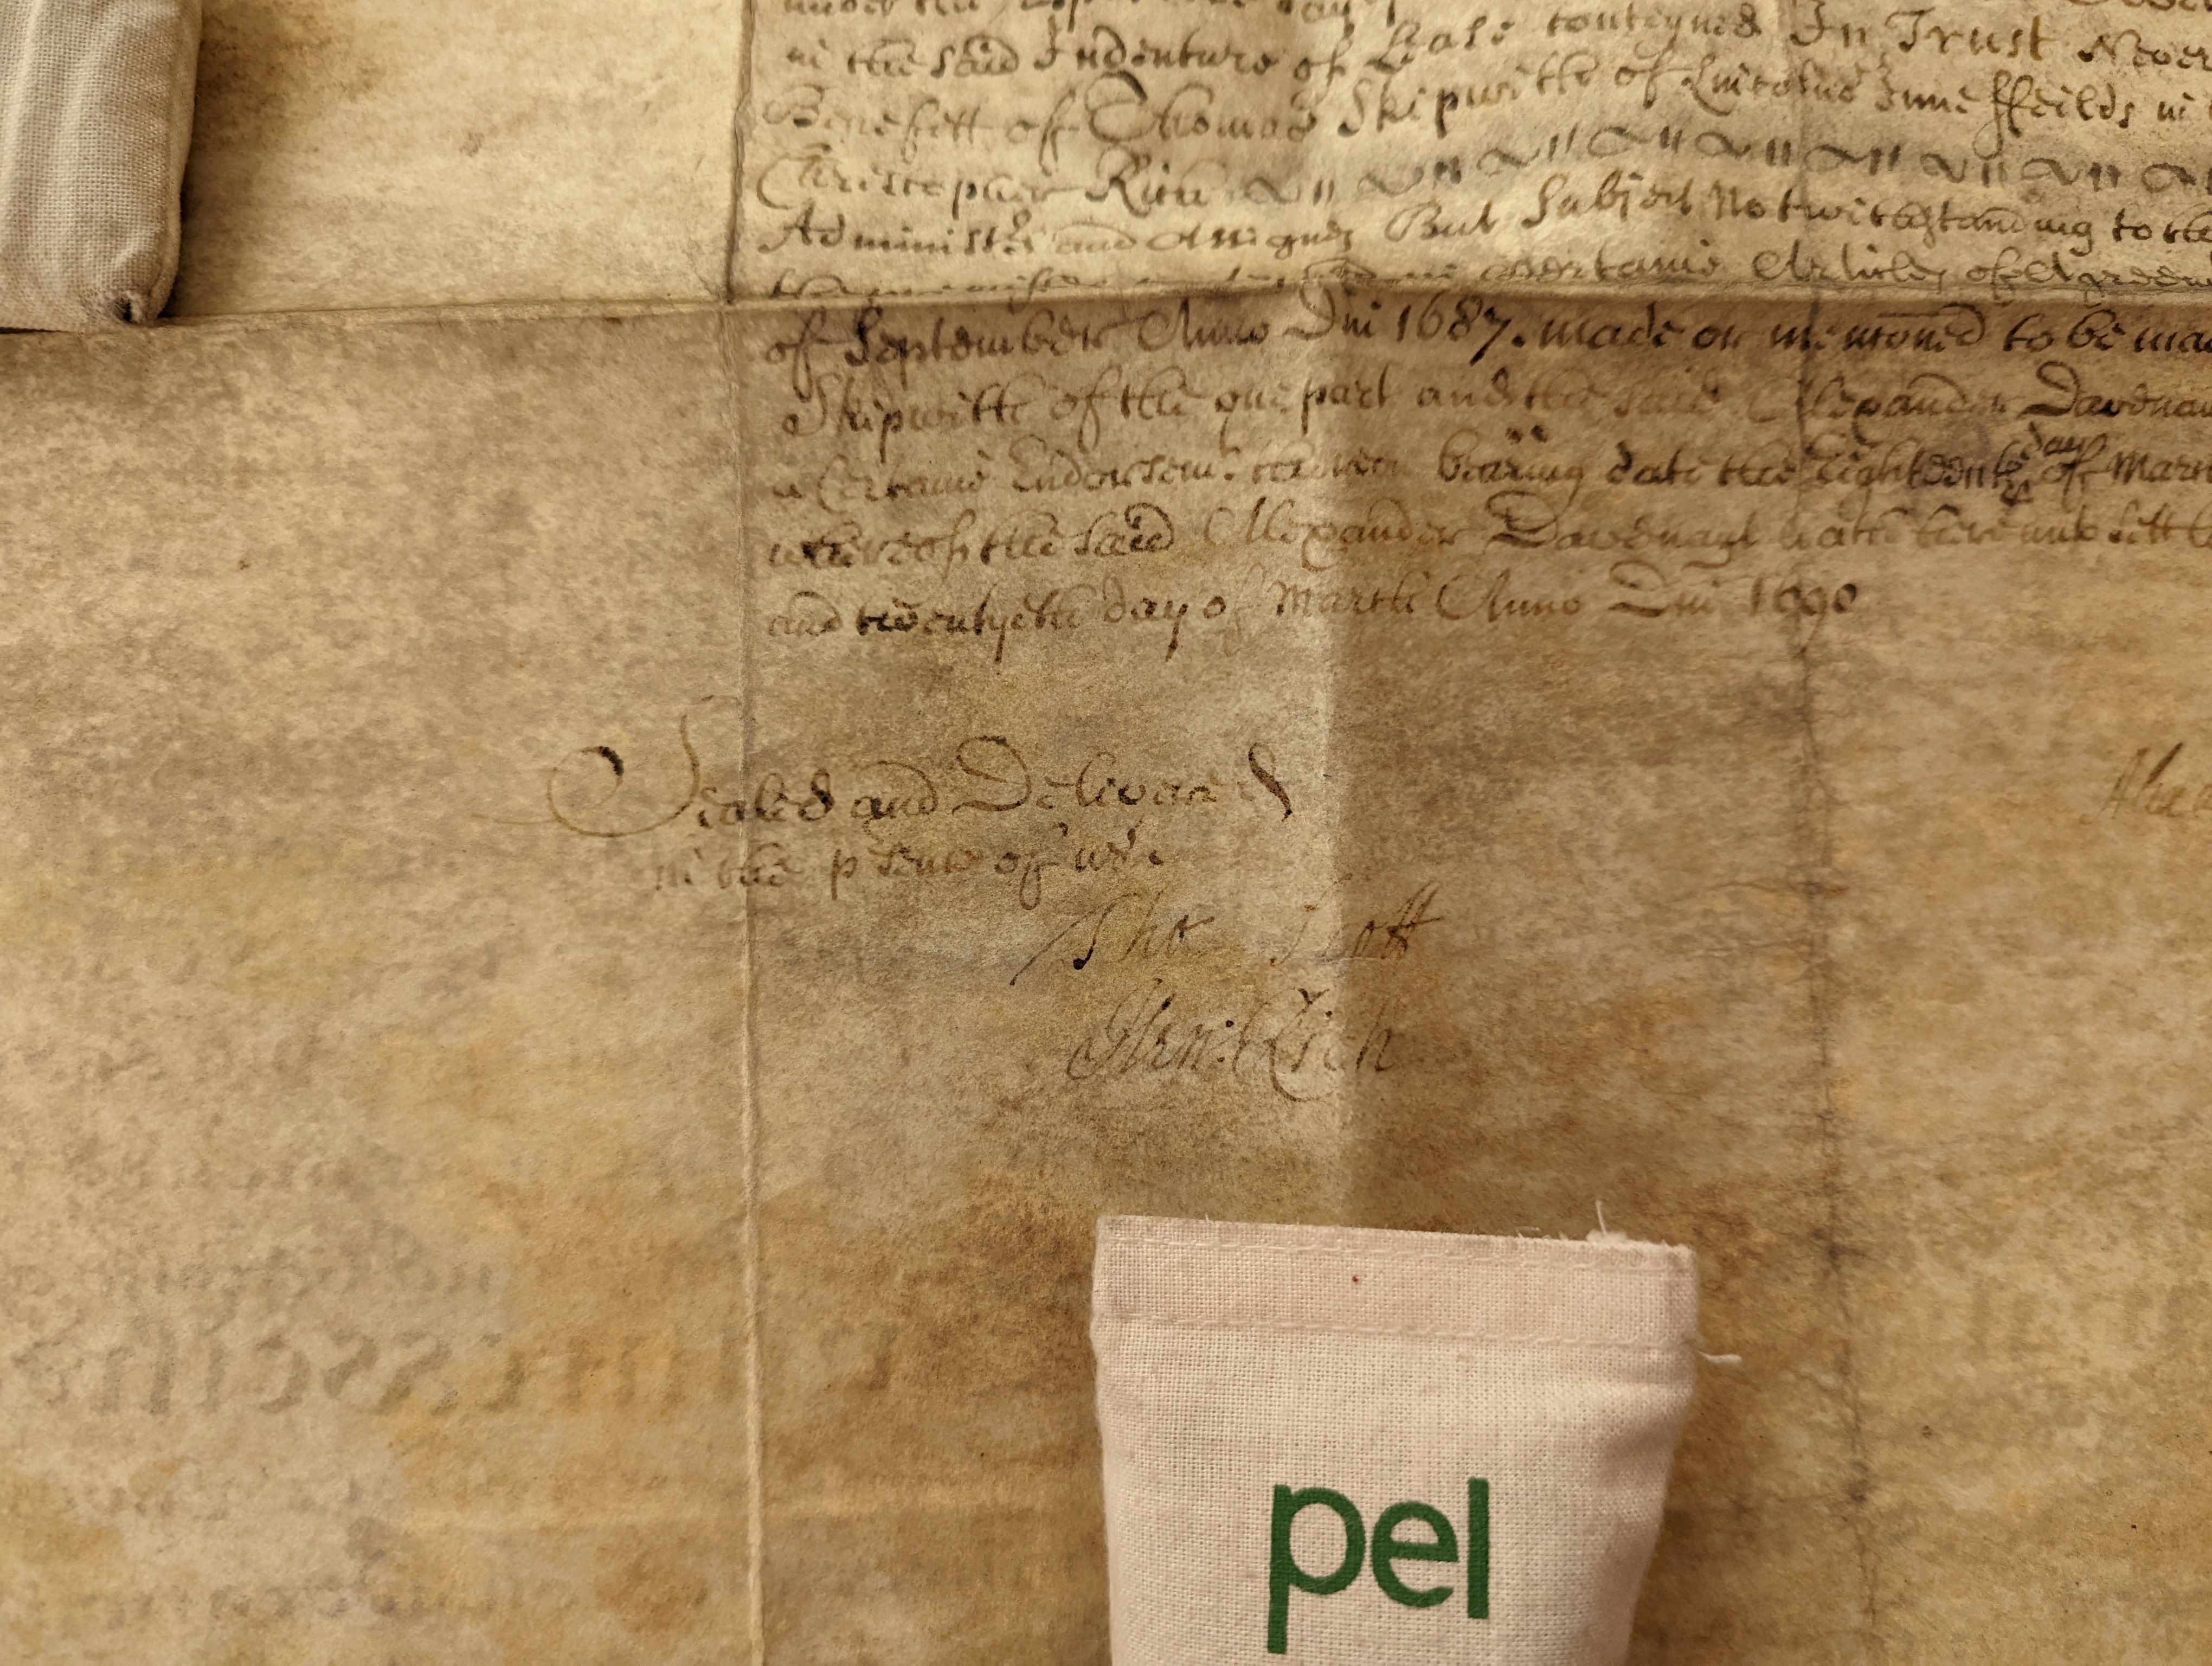 in the said Indenture of Lease conteyned In Trust Never
Benefitt of Thomas Skipwith of Lincolns Inne ffeilds in
Christopher Rich
Administrs and Assignes But Subject Notwithstanding to the
certaine Articles of Agreem
of September Anno Dni 1687. made or menconed to be mad
Skipwith of the one part and the said Alexander Davenan
a Certaine Endorsemt. thereon bearing date the Eighteenth day of March
whereof the said Alexander Davenant hath hereunto sett h
and twentyeth day of March Anno Dni 1690
Sealed and Delivered
in the psence of us.
Alex
Tho Lott
Hen: Rich
pel